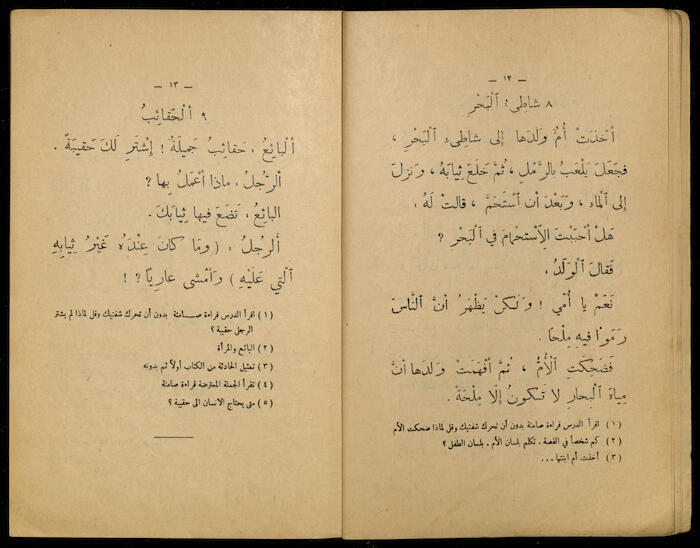 – ١٢ –
٨ شاطِىءُ ٱلْبَحْرِ
أَخَذَتْ أُمٌّ وَلَدَها إلى شاطِىءِ ٱلْبَحْرِ ،
فَجَعَلَ يَلْعَبُ بِالرَّمْلِ ، ثُمَّ خَلَعَ ثِيابَهُ ، وَنَزَلَ
إلى ٱلْماءِ ، وَبَعْدَ أن ٱسْتَحَمَّ ، قالَتْ لَهُ :
هَلْ أَحْبَبْتَ ٱلِٱسْتِحْمامَ في ٱلْبَحْرِ ؟
فَقالَ ٱلْوَلَدُ :
نَعَمْ يا أُمّي ! وَلٰكِنْ يَظْهَرُ أنَّ النَّاسَ
رَمَوْا فيهِ مِلْحاً .
فَضَحِكَتِ ٱلْأُمُّ ، ثُمَّ أَفْهَمَتْ وَلَدَها أنَّ
مِياهَ ٱلْبِحارِ لا تَكونُ إلّا مِلْحَةً .
( ١ ) اقرأ الدرس قراءة صامتة بدون أن تحرك شفتيك وقل لماذا ضحكت الأم
( ٢ ) كم شخصاً في القصة . تكلم بلسان الأم . بلسان الطفل ؟
( ٣ ) أخذت أم ابنتها ...
– ١٣ –
٩ ٱلْحَقائِبُ
ٱلْبائِعُ : حَقائِبُ جَميلَةٌ ! إِشْتَرِ لَكَ حَقيبَةً .
ٱلرَّجُلُ : ماذا أَعْمَلُ بِها ؟
البائِعُ : تَضَعَ فيها ثِيابَكَ .
ٱلرجُلُ : ( وَمَا كانَ عِنْدَهُ غَيْرُ ثِيابِهِ
ٱلَّتي عَلَيْهِ ) وَأَمْشى عارِياً ؟ !
( ١ ) اقرأ الدرس قراءة صامتة بدون أن تحرك شفتيك وقل لماذا لم يشتر
الرجل حقيبة ؟
( ٢ ) البائع والمرأة
( ٣ ) تمثيل الحادثة من الكتاب أولاً ثم بدونه
( ٤ ) تقرأ الجملة المعترضة قراءة صامتة
( ٥ ) متى يحتاج الانسان الى حقيبة ؟